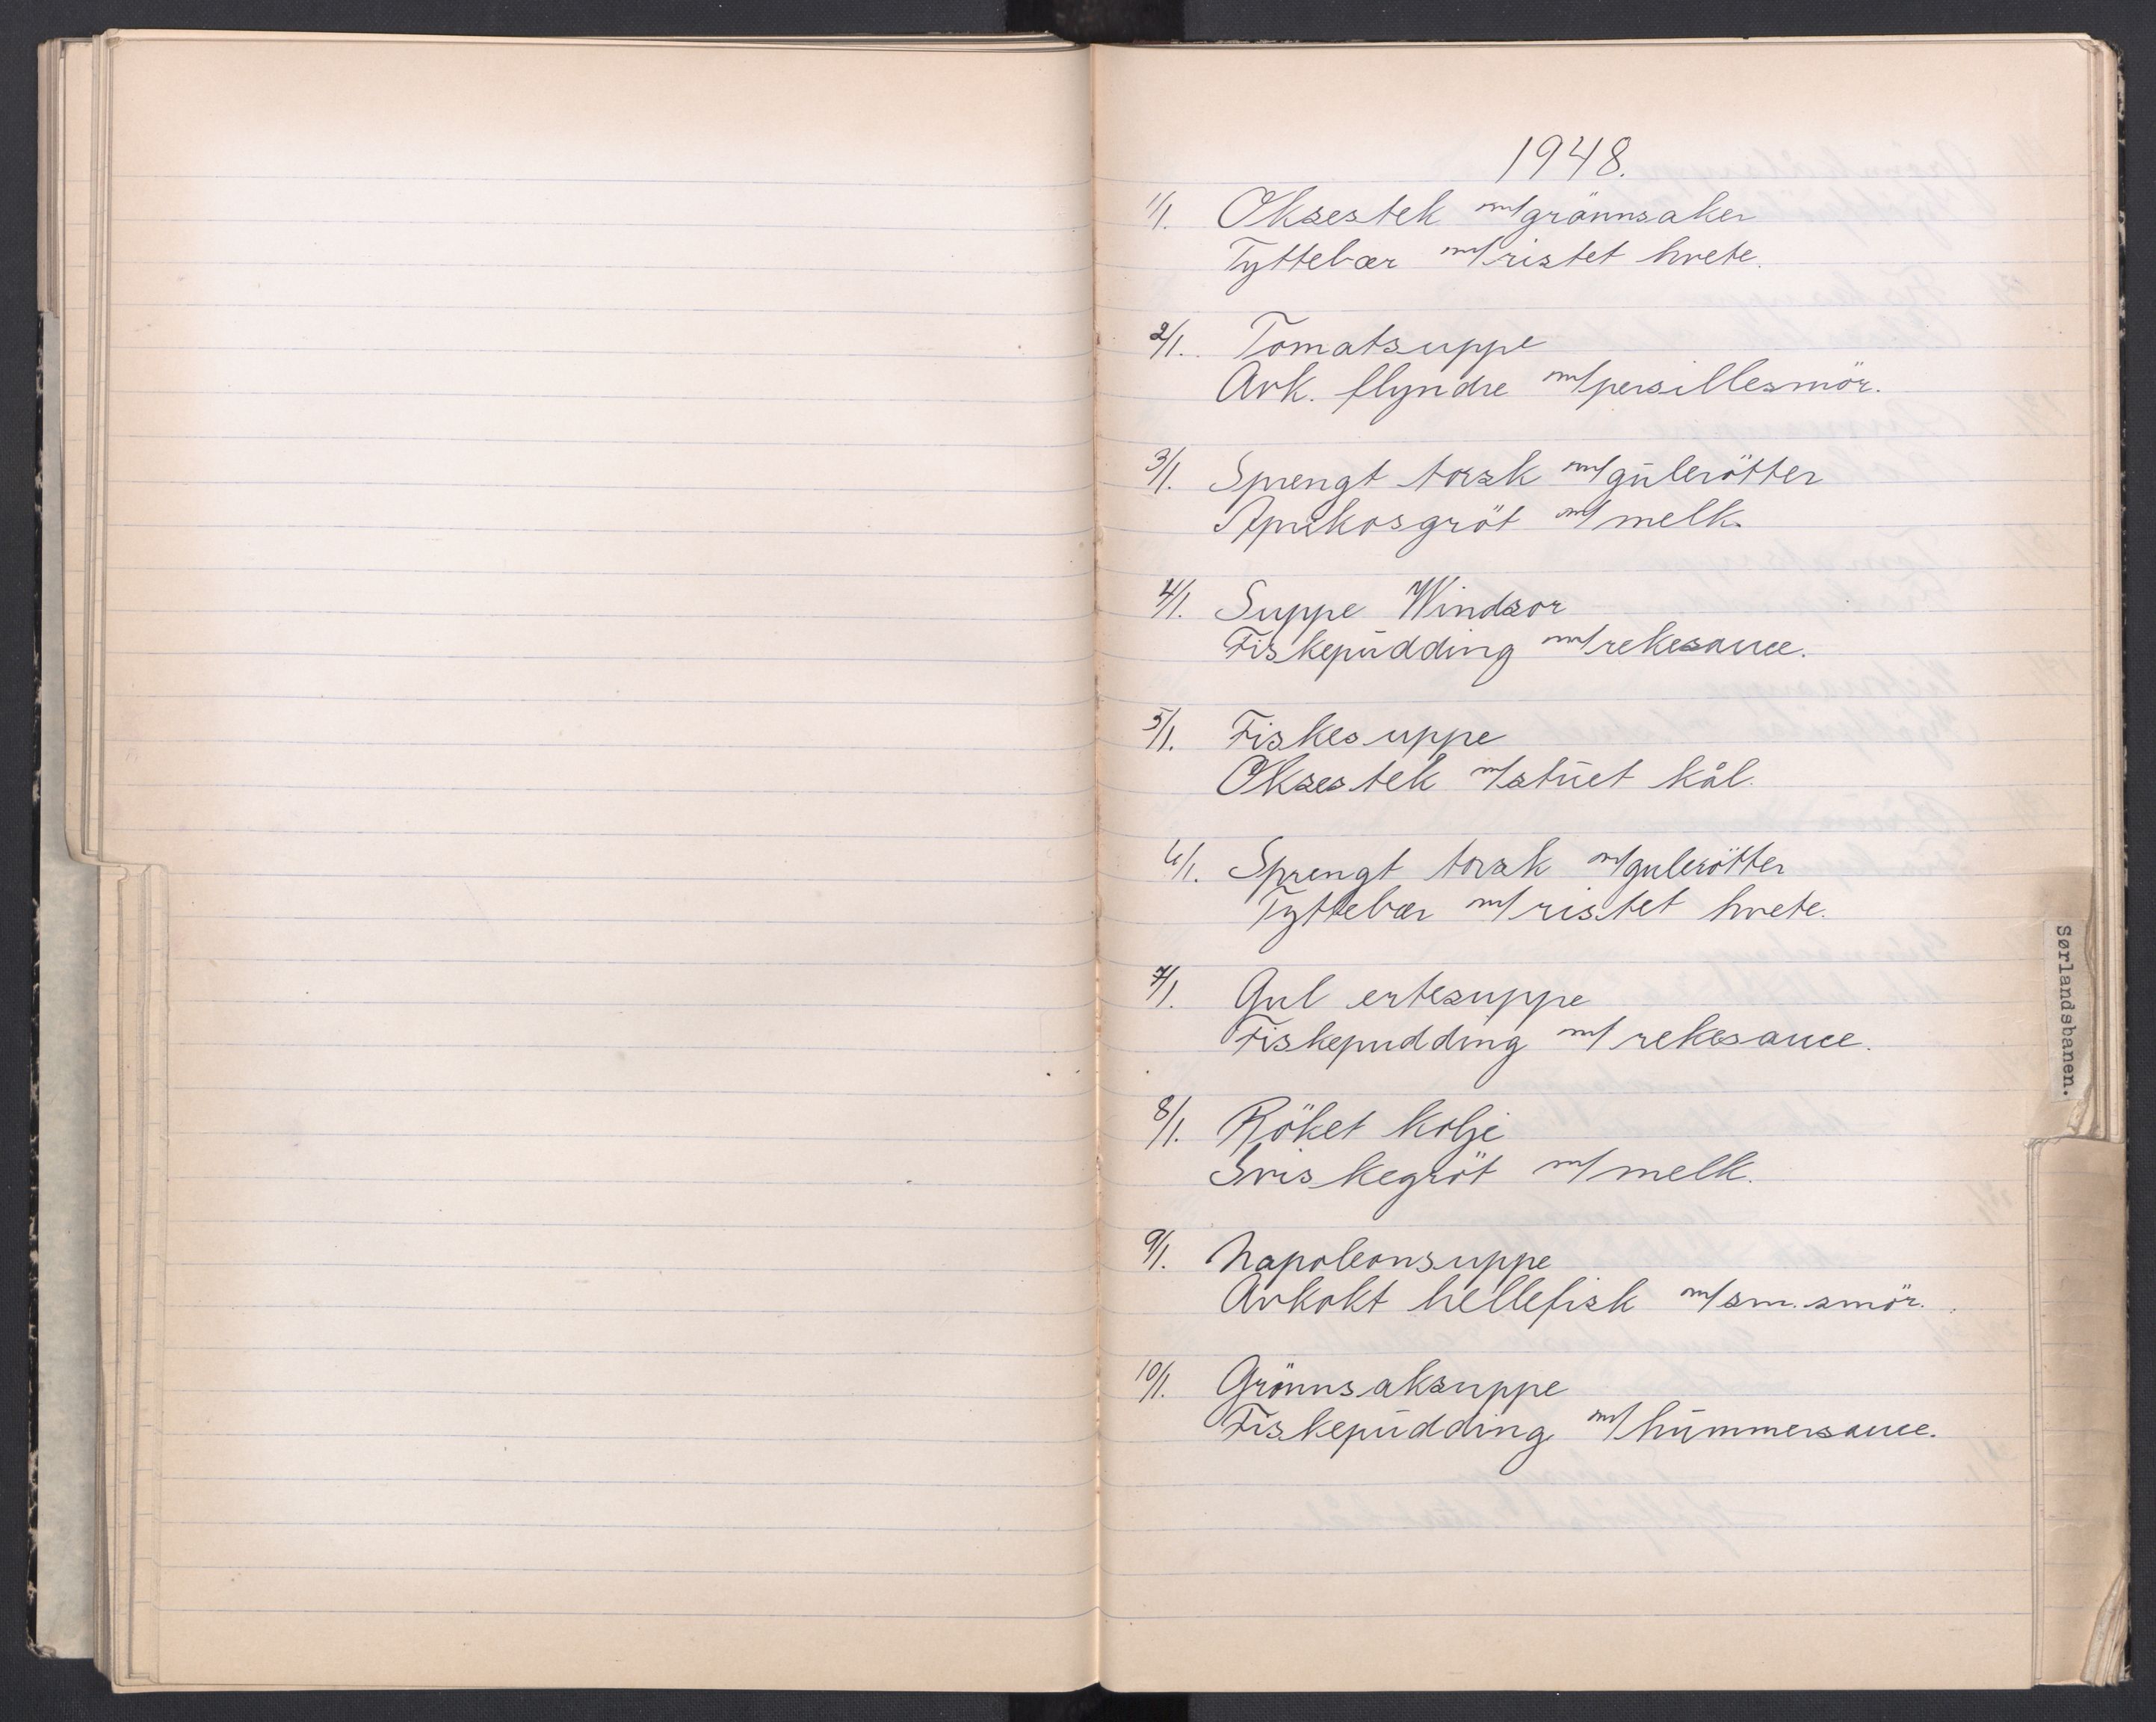 1948.
1/1. Oksestek m/grönnsaker
Tyttebær m/ristet hvete.
2/1. Tomatsuppe
Avk. flyndre m/persillesmör.
3/1. Sprengt torsk m/gulerötter
Aprikosgröt m/melk.
4/1. Suppe Windsor
Fiskepudding m/rekesauce.
5/1. Fiskesuppe
Oksestek m/stuet kål.
6/1. Sprengt torsk m/gulerötter
Tyttebær m/ristet hvete.
7/1. Gul ertesuppe
Fiskepudding m/rekesauce.
8/1. Röket kolje
Sviskegröt m/melk.
9/1. Napoleonsuppe
Avkokt hellefisk m/sm. smör.
10/1. Grönnsaksuppe
Fiskepudding m/hummersauce.
Sørlandsbanen.